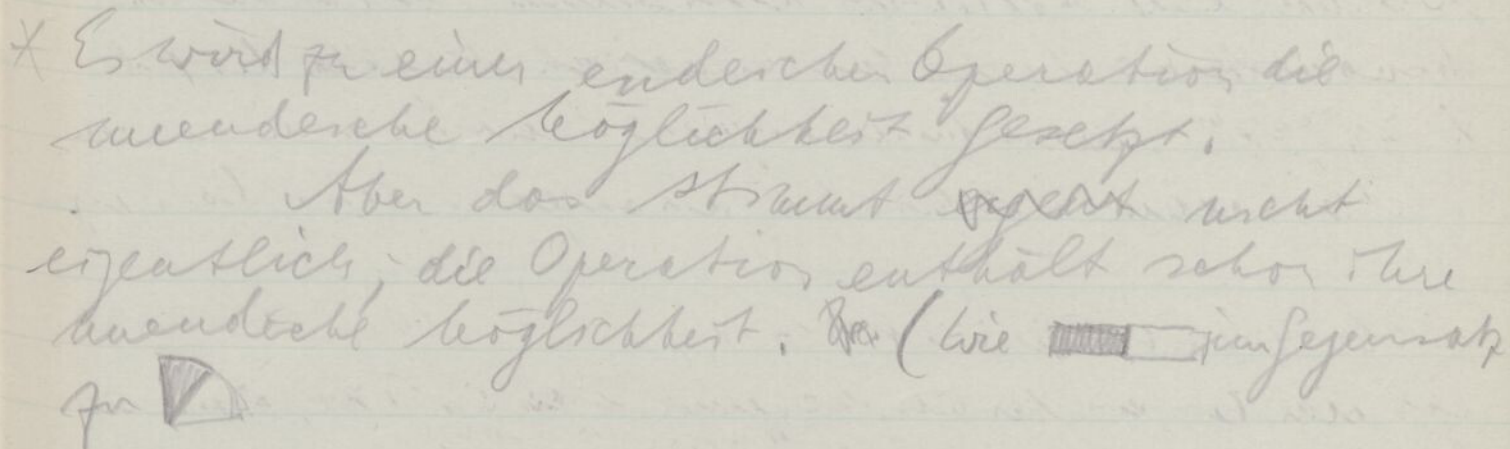 * Es wird zu einer endlichen Operation die
unendliche Möglichkeit gesetzt.
Aber das stimmt nicht
eigentlich, die Operation enthält schon ihre
unendliche Möglichkeit. (Wie im Gegensatz
zu